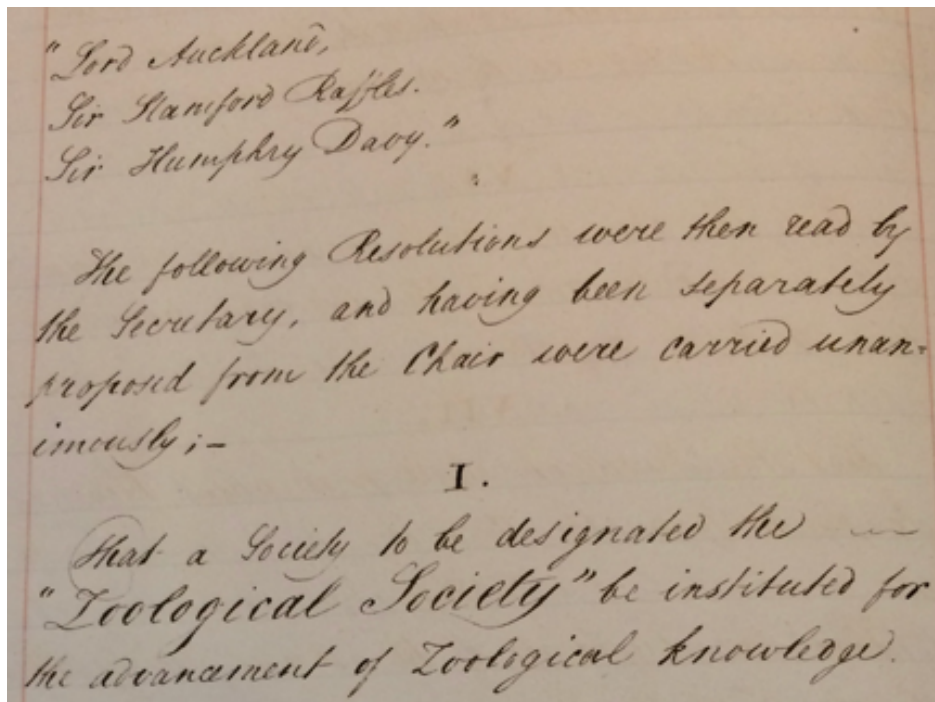 "Lord Auckland,
Sir Stamford Raffles.
Sir Humphry Davy."
The following Resolutions were then read by
the Secretary, and having been separately
proposed from the Chair were carried unan=
imously; –
I.
That a Society to be designated the
"Zoological Society" be instituted for
the advancement of Zoological knowledge.